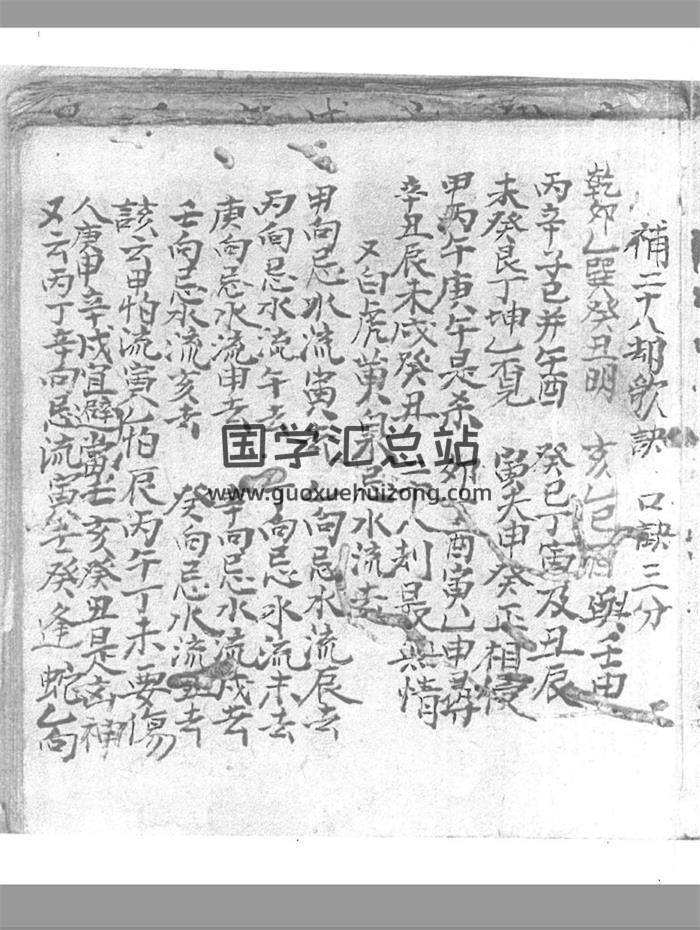 補二十八却歌訣 口訣三分
乾卯乙巽癸丑明 亥乙巳 與壬申
丙辛子巳并午酉 癸巳丁寅及丑辰
未癸艮丁坤乙 見 申癸正相侵
甲丙午庚 午是杀 卯 酉寅乙申尋
辛丑辰未戌癸丑 二八刦最無情
又白虎黄泉忌水流去
甲向忌水流寅去 向忌水流辰去
丙向忌水流午去 丁向忌水流未去
庚向忌水流申去 辛向忌水流戌去
壬向忌水流亥去 癸向忌水流丑去
訣云甲怕流寅乙怕辰丙午丁未要傷
人庚申辛戌宜避當壬亥癸丑是 神
又云丙丁辛向忌流寅 壬癸逢蛇 向
国学汇总站
www.guoxuehuizong.com